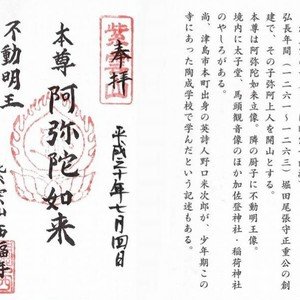 弘長年間（一二六一～一二六三）堀田尾張守正重公の創
建で、その子弥阿上人を開山とする。
本尊は阿弥陀如来立像。隣の厨子に不動明王像。
境内に太子堂、馬頭観音像のほか加佐登神社・稲荷神社
のやしろがある。
尚、津島市本町出身の英詩人野口米次郎が、少年期この
寺にあった陶成学校で学んだという記述もある。
平成三十年七月四日
奉拝
紫雲山
本尊 阿弥陀如来
不動明王